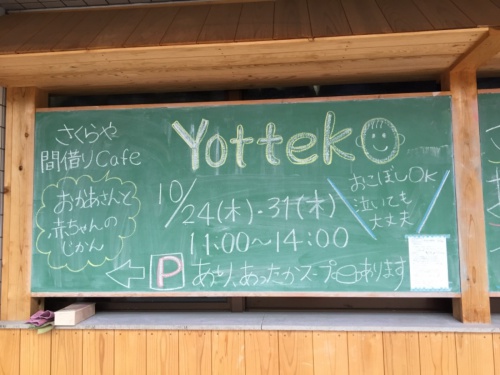 さくらや
間借りCafe
おかあさんと
赤ちゃんの
じかん
Yotteko
10/24(木)・31(木)
11:00〜14:00
おこぼしOK
泣いても
大丈夫
P
あり、あったかスープあります